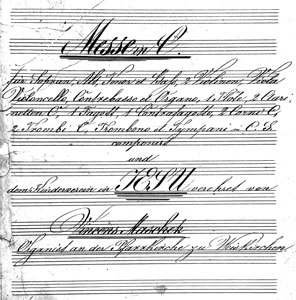 Messe in C.
für Sopran, Alt, Tenor et Baß, 2 Violinen, Viola
Violoncello, Contrabasso et Organo, 1 Flöte, 2 Clari-
netten C, 1 Fagott, 1 Contrafagott, 2 Corni C,
2 Trombi C, Trombono et Tympani in C. G.
componirt
und
dem in JESU verehret von
Vincens Maschek
Organist an der Pfarrkirche zu Weiskirchen.